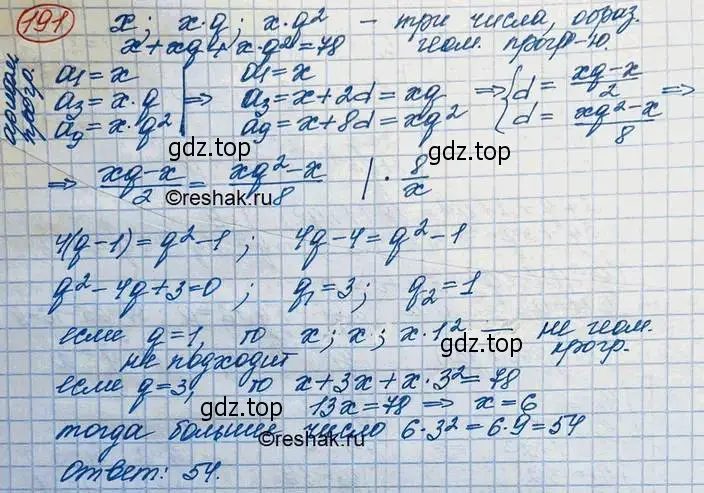 191 x; x·q; x·q² – три числа, образ.
x+xq+x·q²=78 геом. прогр-ю.
арифм. прогр.
a₁=x
a₃=x·q
a₉=x·q² ⇒ a₁=x
a₃=x+2d=xq
a₉=x+8d=xq² ⇒ { d=(xq-x)/2
d=(xq²-x)/8 ⇒
gdz.top gdz.top
⇒ (xq-x)/2 = (xq²-x)/8 | · 8/x
©reshak.ru ©reshak.ru
4(q-1)=q²-1; 4q-4=q²-1
q²-4q+3=0; q₁=3; q₂=1
если q=1, то x; x; x·1² – не геом. прогр.
не подходит
если q=3, то x+3x+x·3²=78
gdz.top gdz.top
13x=78 ⇒ x=6
тогда большее число 6·3²=6·9=54
©reshak.ru ©reshak.ru
Ответ: 54.